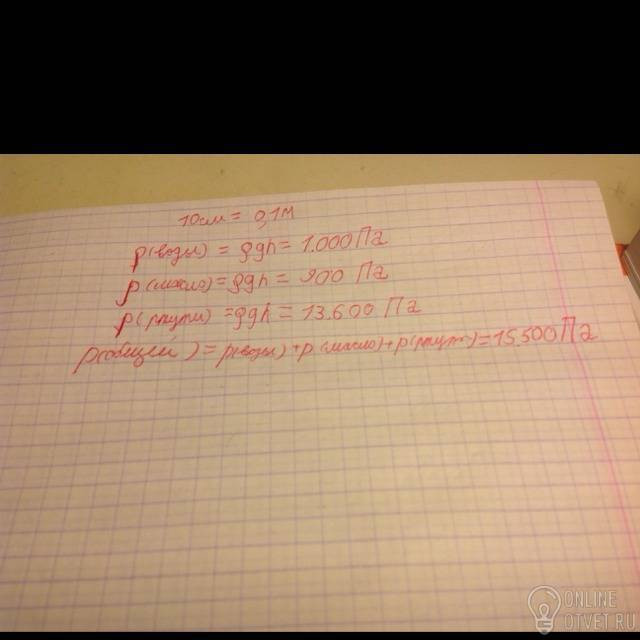 10см = 0,1м
p(воды) = ρgh = 1.000 Па
p(масло) = ρgh = 900 Па
p(ртути) = ρgh = 13.600 Па
p(общей) = p(воды) + p(масло) + p(ртути) = 15.500 Па
ONLINE
OTVET.RU